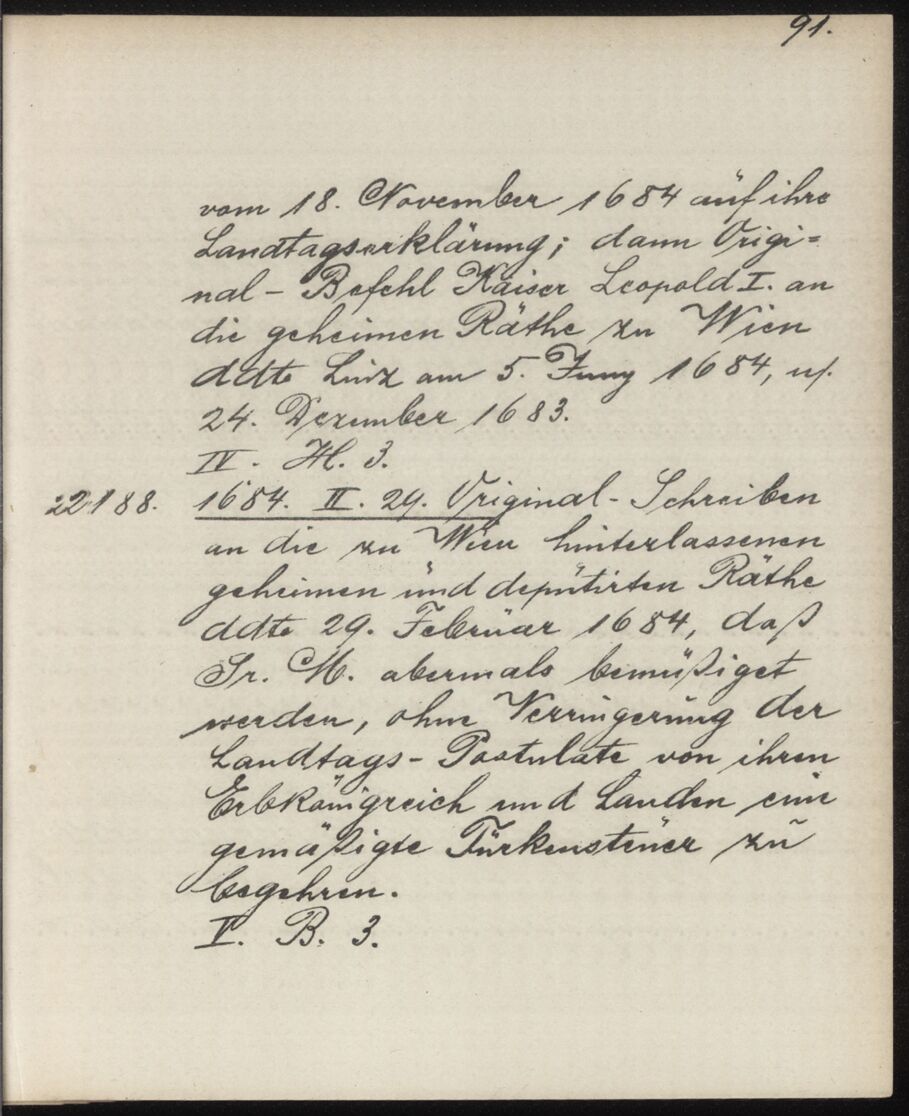 91.
vom 18. November 1684 auf ihre
Landtagserklärung; dann Origi=
nal - Befehl Kaiser Leopold I. an
die geheimen Räthe zu Wien
ddto Linz am 5. Juny 1684, u.
24. Dezember 1683.
IV. H. 3.
22188. 1684. II. 29. Original - Schreiben
an die zu Wien hinterlassenen
geheimen und deputirten Räthe
ddto 29. Februar 1684, daß
Sr. M. abermals bemüßiget
werden, ohne Verringerung der
Landtags - Postulate von ihren
Erbkönigreich und Landen eine
gemäßigte Türkensteuer zu
begehren.
V. B. 3.